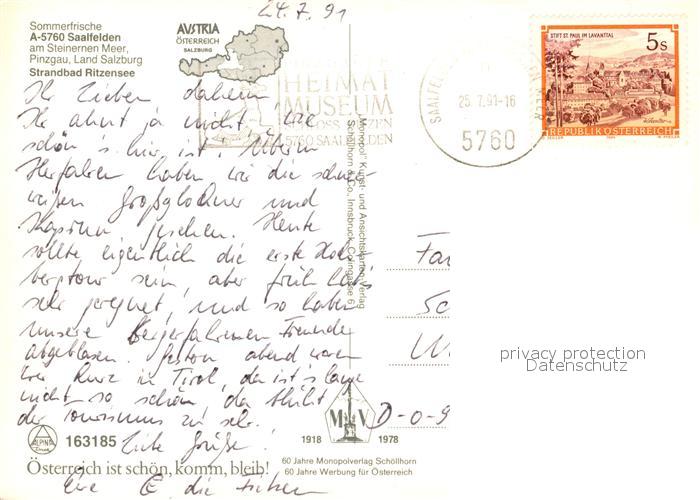 24.7.91
Sommerfrische
A-5760 Saalfelden
am Steinernen Meer,
Pinzgau, Land Salzburg
Strandbad Ritzensee
AUSTRIA
ÖSTERREICH
SALZBURG
HEIMAT
MUSEUM
SCHLOSS RITZEN
5760 SAALFELDEN
25.7.91-16
5760
STIFT ST. PAUL IM LAVANTTAL
5s
REPUBLIK ÖSTERREICH
Ihr Lieben daheim,
Ihr ahnt ja nicht, wie
schön's hier ist. Übern
Herfahren haben wir die schnee-
weißen Großglockner und
Kaprun gesehen. Heute
sollte eigentlich die erste Hoch-
bergtour sein, aber früh hat's
sehr geregnet, und so haben
unsere Bergerfahrenen Freunde
abgeblasen. Gestern abend waren
wir kurz in Tirol, da ist's lange
nicht so schön, da blüht
der Tourismus zu sehr.
Liebe Grüße!
Eure die
"Monopol" Kunst- und Ansichtskarten-Verlag
Schöllhorn & Co., Innsbruck,
Fam
Sc
D-O-9
privacy protection
Datenschutz
ALPINA
163185
MV
1918 1978
60 Jahre Monopolverlag Schöllhorn
60 Jahre Werbung für Österreich
Österreich ist schön, komm, bleib!